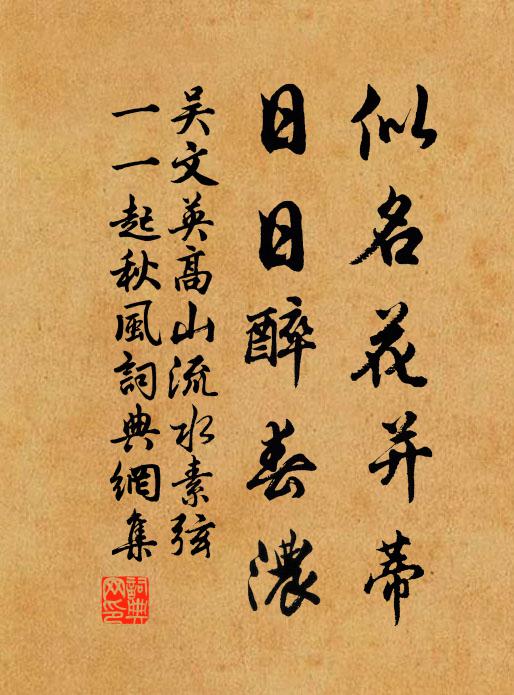 似名花并蒂
日日醉春濃
吳文英高山流水素弦
一一起秋風詞典網集
詞典網印